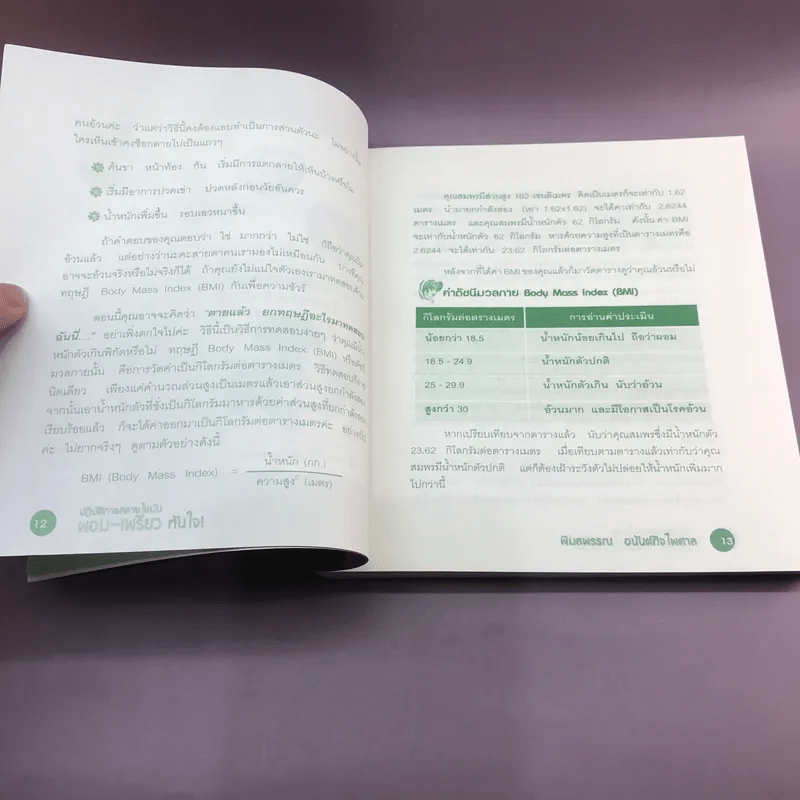 คนอ้วนค่ะ ว่าแต่ว่าวิธีนี้คงต้องแอบทำเป็นการส่วนตัวนะ ไม่อย่างนั้น
ใครเห็นเข้าคงช็อกตายไปเป็นแถวๆ
ต้นขา หน้าท้อง ก้น เริ่มมีการแตกลายให้เห็นบ้างหรือไม่
เริ่มมีอาการปวดเข่า ปวดหลังก่อนวัยอันควร
น้ำหนักเพิ่มขึ้น รอบเอวหนาขึ้น
ถ้าคำตอบของคุณตอบว่า ใช่ มากกว่า ไม่ใช่ ก็ถือว่าคุณเป็น
อ้วนแล้ว แต่อย่างว่านะคะสายตาคนเรามองไม่เหมือนกัน บางทีคุณ
อาจจะอ้วนจริงหรือไม่จริงก็ได้ ถ้าคุณยังไม่แน่ใจตัวเองเรามาทดสอบด้วย
ทฤษฎี Body Mass Index (BMI) กันเพื่อความชัวร์
ตอนนี้คุณอาจจะคิดว่า "ตายแล้ว ยกทฤษฎีอะไรมาทดสอบ
ฉันนี่...." อย่าเพิ่งตกใจไปค่ะ วิธีนี้เป็นวิธีการทดสอบง่ายๆ ว่าคุณมีน้ำ
หนักตัวเกินพิกัดหรือไม่ ทฤษฎี Body Mass Index (BMI) หรือดัชนี
มวลกายนั้น คือการวัดค่าเป็นกิโลกรัมต่อตารางเมตร วิธีทดสอบก็ง่าย
นิดเดียว เพียงแค่คำนวณส่วนสูงเป็นเมตรแล้วเอาส่วนสูงยกกำลังสอง
จากนั้นเอาน้ำหนักตัวที่ชั่งเป็นกิโลกรัมมาหารด้วยค่าส่วนสูงที่ยกกำลังสอง
เรียบร้อยแล้ว ก็จะได้ค่าออกมาเป็นกิโลกรัมต่อตารางเมตรค่ะ
ค่ะ ไม่ยากจริงๆ ดูตามตัวอย่างดังนี้
BMI (Body Mass Index) = น้ำหนัก (กก.)
ความสูง² (เมตร)
12 ปฏิบัติการสลายไขมัน
ผอม-เพรียว ทันใจ!
คุณสมพรมีส่วนสูง 162 เซนติเมตร คิดเป็นเมตรก็จะเท่ากับ 1.62
เมตร นำมายกกำลังสอง (เอา 1.62x1.62) จะได้ค่าเท่ากับ 2.6244
ตารางเมตร และคุณสมพรมีน้ำหนักตัว 62 กิโลกรัม ดังนั้นค่า BMI
จะเท่ากับน้ำหนักตัว 62 กิโลกรัม หารด้วยความสูงที่เป็นตารางเมตรคือ
2.6244 จะได้เท่ากับ 23.62 กิโลกรัมต่อตารางเมตร
หลังจากที่ได้ค่า BMI ของคุณแล้วก็มาวัดตารางดูว่าคุณอ้วนหรือไม่
ค่าดัชนีมวลกาย Body Mass Index (BMI)
กิโลกรัมต่อตรางเมตร การอ่านค่าประเมิน
น้อยกว่า 18.5 น้ำหนักน้อยเกินไป ถือว่าผอม
18.5 - 24.9 น้ำหนักตัวปกติ
25 - 29.9 น้ำหนักตัวเกิน นับว่าอ้วน
สูงกว่า 30 อ้วนมาก และมีโอกาสเป็นโรคอ้วน
หากเปรียบเทียบจากตารางแล้ว นับว่าคุณสมพรซึ่งมีน้ำหนักตัว
23.62 กิโลกรัมต่อตารางเมตร เมื่อเทียบตามตารางแล้วเท่ากับว่าคุณ
สมพรมีน้ำหนักตัวปกติ แต่ก็ต้องเฝ้าระวังตัวไม่ปล่อยให้น้ำหนักเพิ่มมาก
ไปกว่านี้
พิมลพรรณ อนันต์กิจไพศาล 13